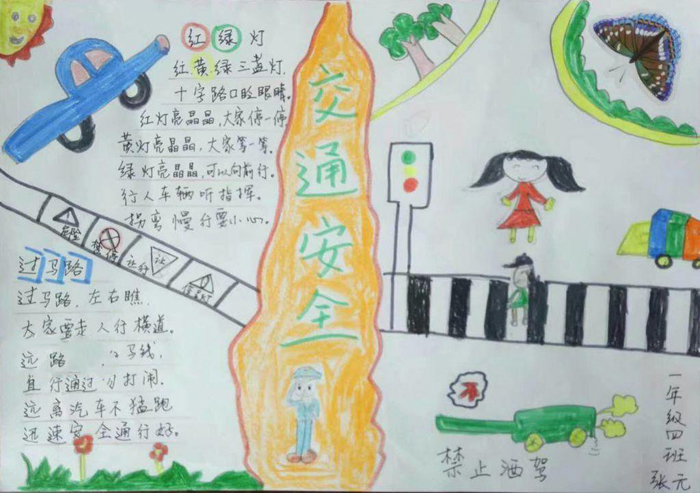 红绿灯
红黄绿三盏灯,
十字路口眨眼睛。
红灯亮晶晶,大家停一停
黄灯亮晶晶,大家等一等。
绿灯亮晶晶,可以向前行。
行人车辆听指挥。
拐弯慢行要小心。
交通安全
危险
禁停
让行
让
过马路
过马路,左右瞧,
大家要走人行横道。
马线,
直行通过勿打闹.
远离汽车不猛跑
迅速安全通行好。
禁止酒驾
一年级四班
张元